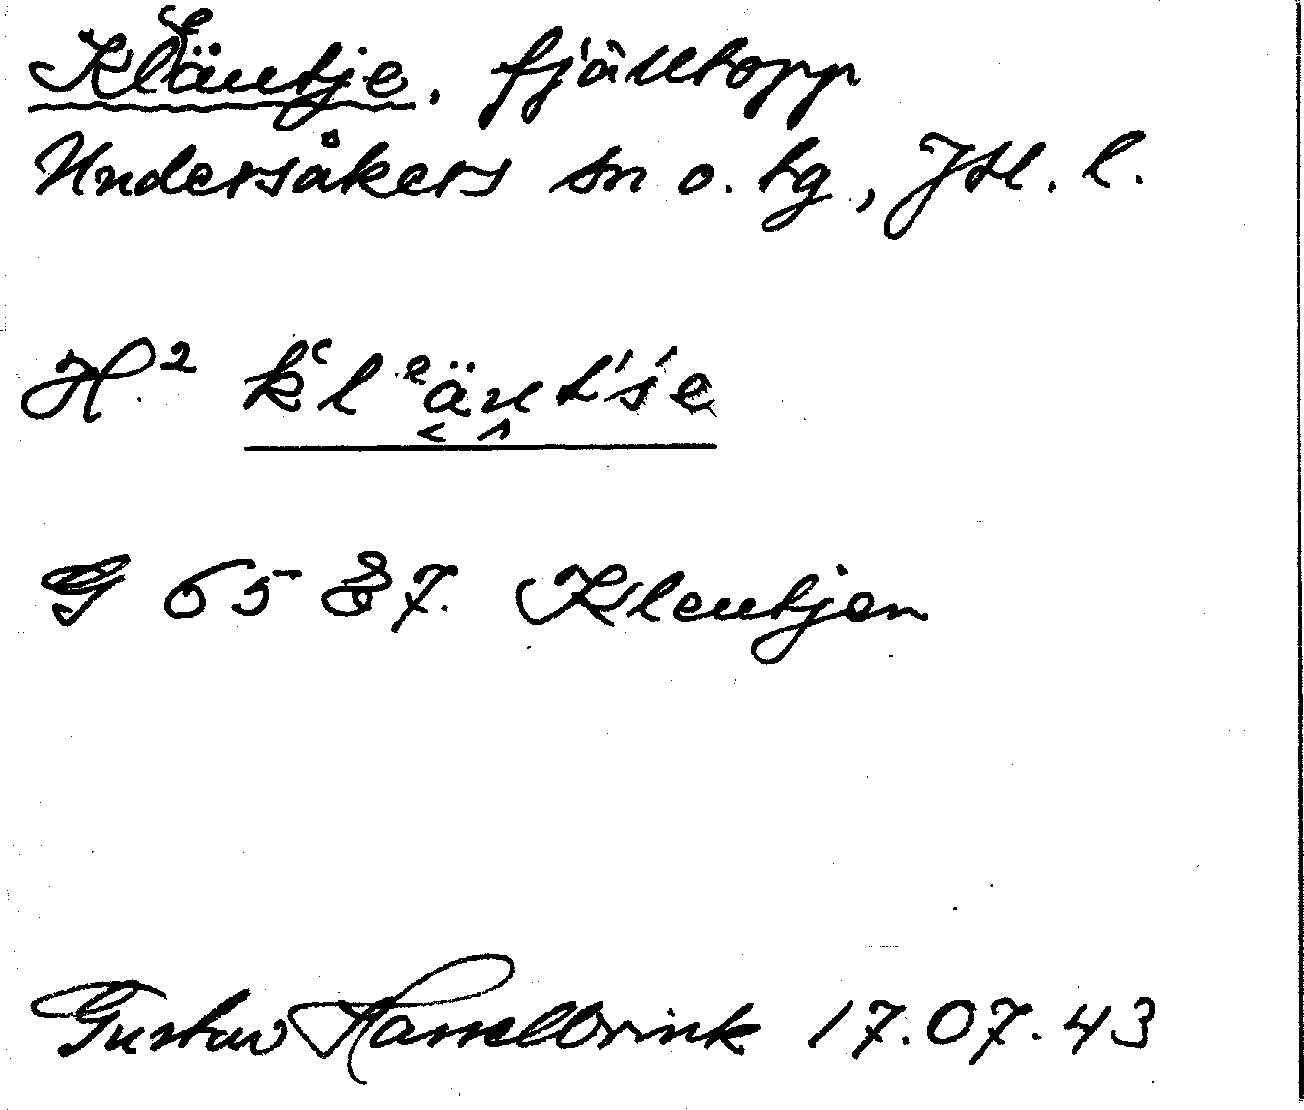 Kleäntje. fjälltopp
Undersåkers sn o. tg, Jtl. l.
H.² kʻlᵉänt's'e
G 6587. Klentjen
Gustav Hasselbrink 17.07.43